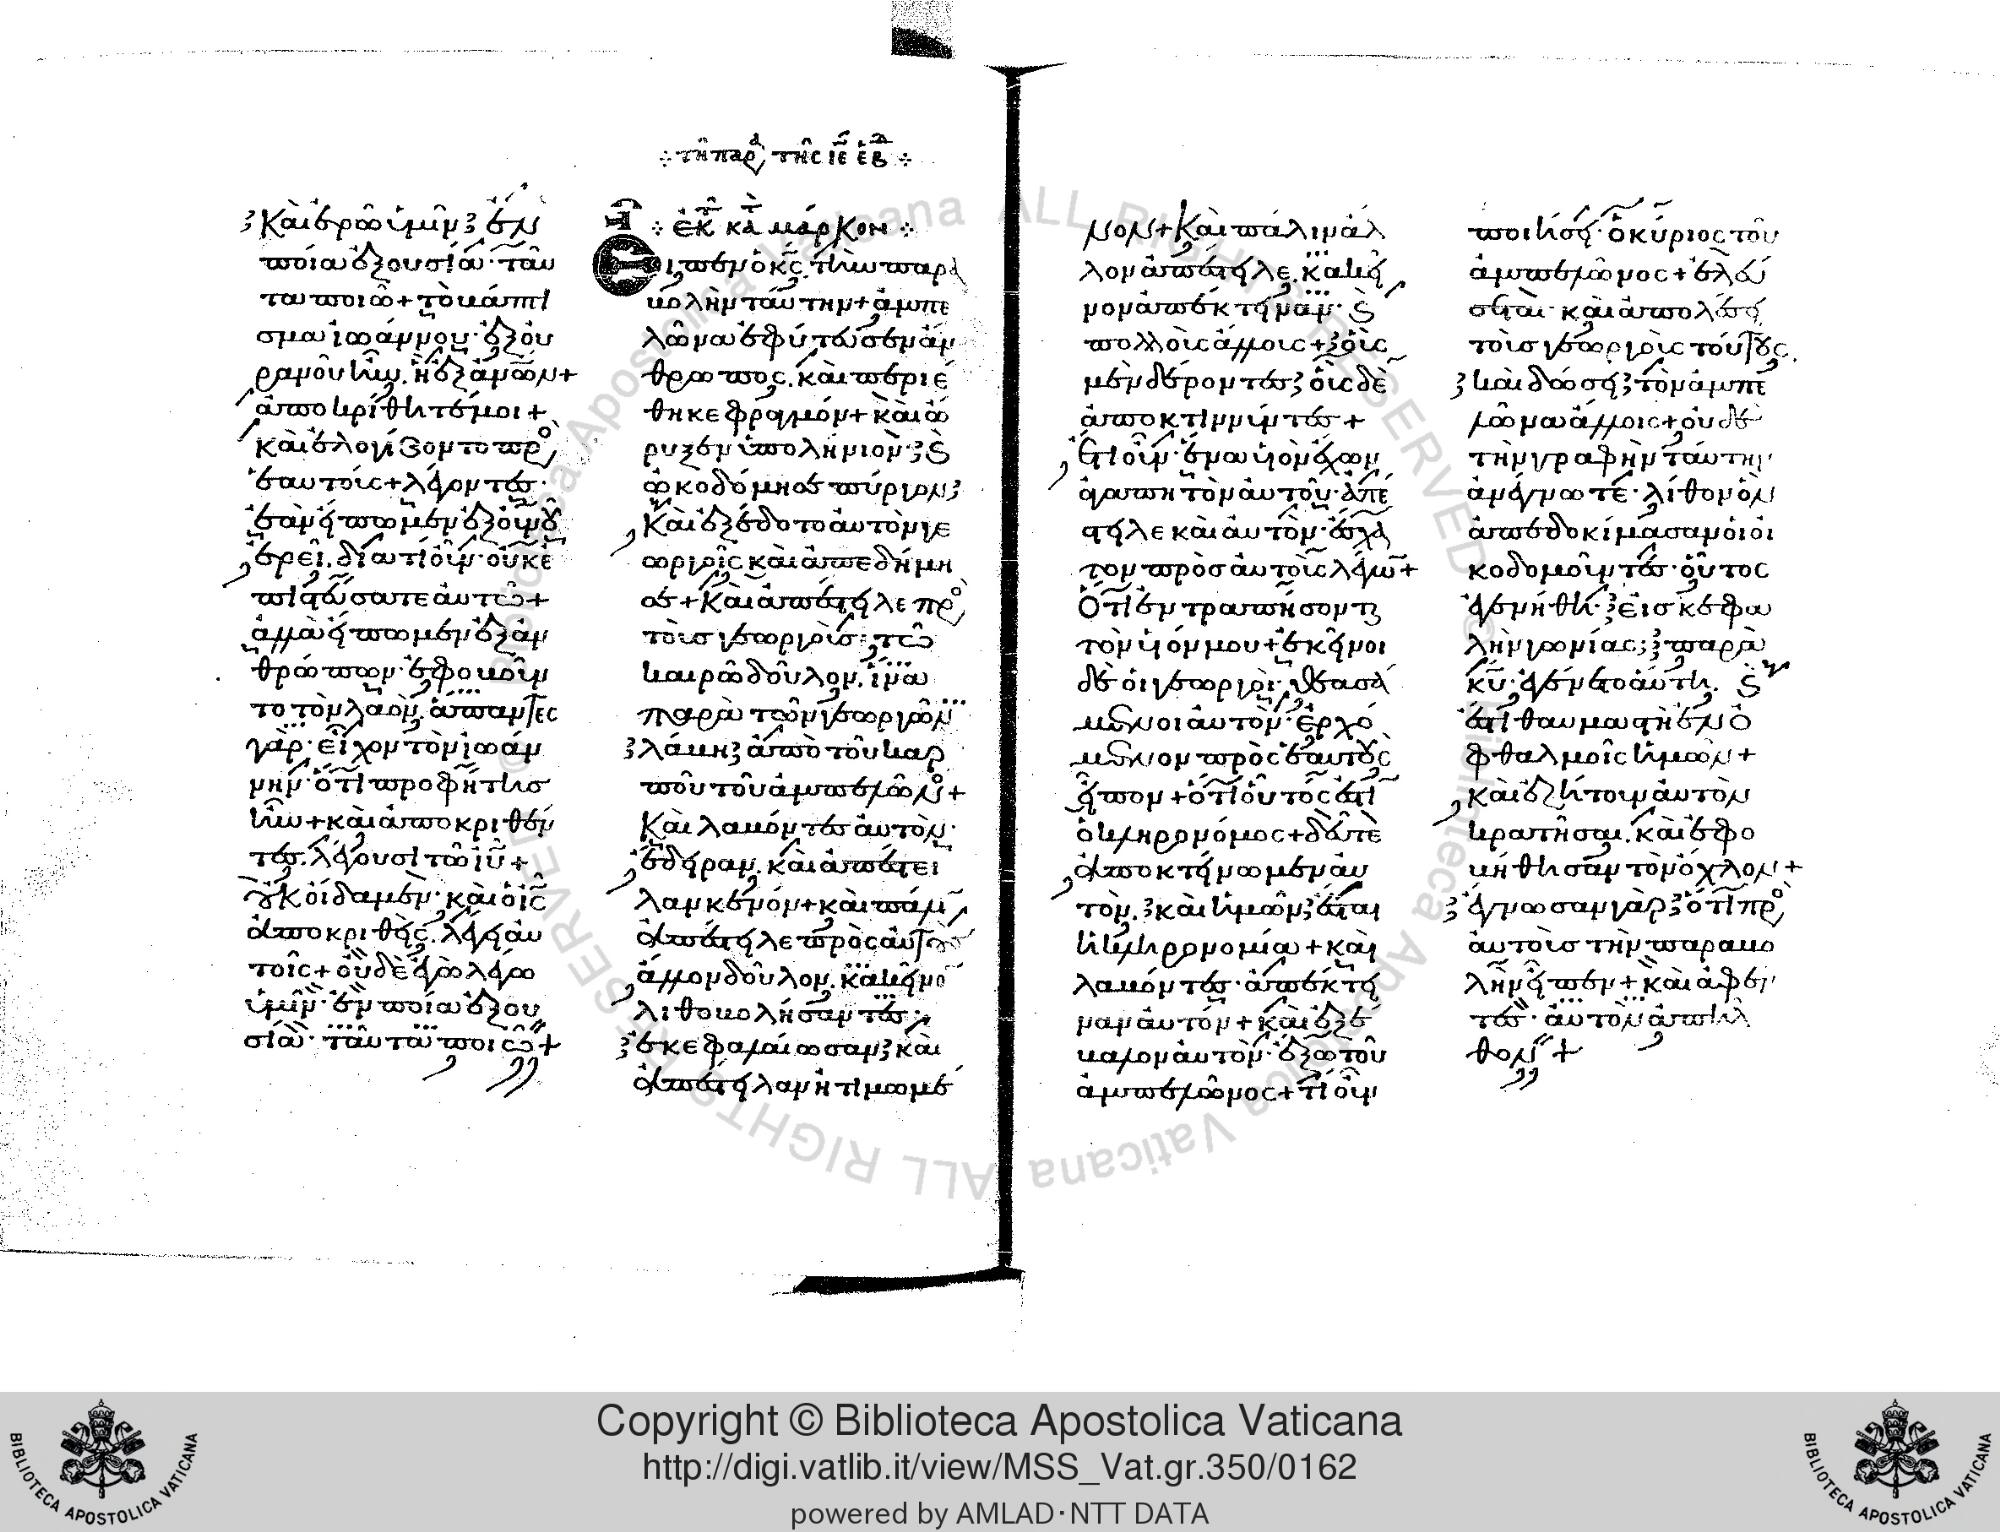 ·:· τῆ παρ(α) τῆς ιε εβ ·:·
Καὶ ἐρῶ ὑμῖν ἐν
ποία ἐξουσία ταῦ
τα ποιῶ + τὸ βάπτι
σμα ἰωάννου ἐξ οὐ
ρανοῦ ἦν, ἢ ἐξ ἀνων +
ἀποκρίθητέ μοι +
καὶ ἐλογίζοντο πρὸ
ἑαυτοὺς + λέγοντες·
ἐὰν εἴπωμεν ἐξ οὐνοῦ
ἐρεῖ, διατί οὖν οὐκ ἐ
πιστεύσατε αὐτῶ +
ἀλλὰ εἴπωμεν ἐξ ἀν
θρώπων· ἐφοβοῦν
το τὸν λαόν, ἅπαντες
γὰρ· εἶχον τὸν ἰωάν
νην· ὅτι προφήτης
ἦν + καὶ ἀποκριθέν
τες, λέγουσι τῶ ιυ +
οὐκ οἴδαμεν· καὶ ὁ ις
ἀποκριθεὶς, λέγει αὐ
τοῖς + οὐδὲ ἐγὼ λέγω
ὑμῖν· ἐν ποία ἐξου
σία· ταῦτα ποιῶ +
·:· ἐκ κατὰ μάρκον ·:·
Εἶπεν ὁ κς, τὴν παρα
βολὴν ταύτην + ἀμπε
λῶνα ἐφύτευσεν ἄν
θρωπος, καὶ περιέ
θηκε φραγμόν + καὶ ὤ
ρυξεν ὑπολήνιον· καὶ
ὠκοδόμησε πύργον
Καὶ ἐξέδοτο αὐτὸν γε
ωργοῖς καὶ ἀπεδήμη
σε + Καὶ ἀπέστειλε πρὸ
τοὺς γεωργοὺς, τῶ
καιρῶ δοῦλον, ἵνα
παρὰ τῶν γεωργῶν
λάβη ἀπὸ τοῦ καρ
ποῦ τοῦ ἀμπελῶνο +
Καὶ λαβόντες αὐτὸν·
ἔδειραν, καὶ ἀπέστει
λαν κενόν + καὶ πάλιν
ἀπέστειλε πρὸς αὐτοὺς
ἄλλον δοῦλον, κἀκεῖνο
λιθοβολήσαντες,
ἐκεφαλαίωσαν καὶ
ἀπέστειλαν ἠτιμωμέ
νον + Καὶ πάλιν ἄλ
λον ἀπέστειλε, κἀκεῖ
νον ἀπέκτειναν· καὶ
πολλοὺς ἄλλους + τοὺς
μὲν δέροντες τοὺς δὲ
ἀποκτιννύντες +
Ἔτι οὖν· ἕνα υἱὸν ἔχων
ἀγαπητὸν αὐτοῦ· ἀπέ
στειλε καὶ αὐτὸν· ἔσχα
τον πρὸς αὐτοὺς λέγων +
Ὅτι ἐντραπήσονται
τὸν υἱόν μου + ἐκεῖνοι
δὲ οἱ γεωργοὶ· θεασά
μενοι αὐτὸν· ἐρχό
μενον πρὸς ἑαυτοὺς
εἶπον + ὅτι οὗτός ἐστιν
ὁ κληρονόμος + δεῦτε
ἀποκτείνωμεν αὐ
τὸν, καὶ ἡμῶν ἔσται
ἡ κληρονομία + καὶ
λαβόντες· ἀπέκτει
ναν αὐτόν + καὶ ἐξέ
βαλον αὐτὸν· ἔξω τοῦ
ἀμπελῶνος + τί οὖν
ποιήσει· ὁ κύριος τοῦ
ἀμπελῶνος + ἐλεύ
σεται· καὶ ἀπολέσει
τοὺς γεωργοὺς τούτους,
καὶ δώσει τὸν ἀμπε
λῶνα ἄλλοις + οὐδὲ
τὴν γραφὴν ταύτην
ἀνέγνωτε· λίθον ὃν
ἀπεδοκίμασαν οἱ οἰ
κοδομοῦντες· οὗτος
ἐγενήθη εἰς κεφα
λὴν γωνίας παρὰ
κυ· ἐγένετο αὕτη, καὶ
ἔστι θαυμαστὴ ἐν ὀ
φθαλμοῖς ἡμῶν +
καὶ ἐζήτουν αὐτὸν
κρατῆσαι, καὶ ἐφο
βήθησαν τὸν ὄχλον +
ἔγνωσαν γὰρ ὅτι πρὸ
αὐτοὺς τὴν παραβο
λὴν εἶπεν + καὶ ἀφέν
τες· αὐτὸν ἀπῆλ
θον +
Copyright © Biblioteca Apostolica Vaticana
http://digi.vatlib.it/view/MSS_Vat.gr.350/0162
powered by AMLAD·NTT DATA
BIBLIOTECA APOSTOLICA VATICANA
BIBLIOTECA APOSTOLICA VATICANA